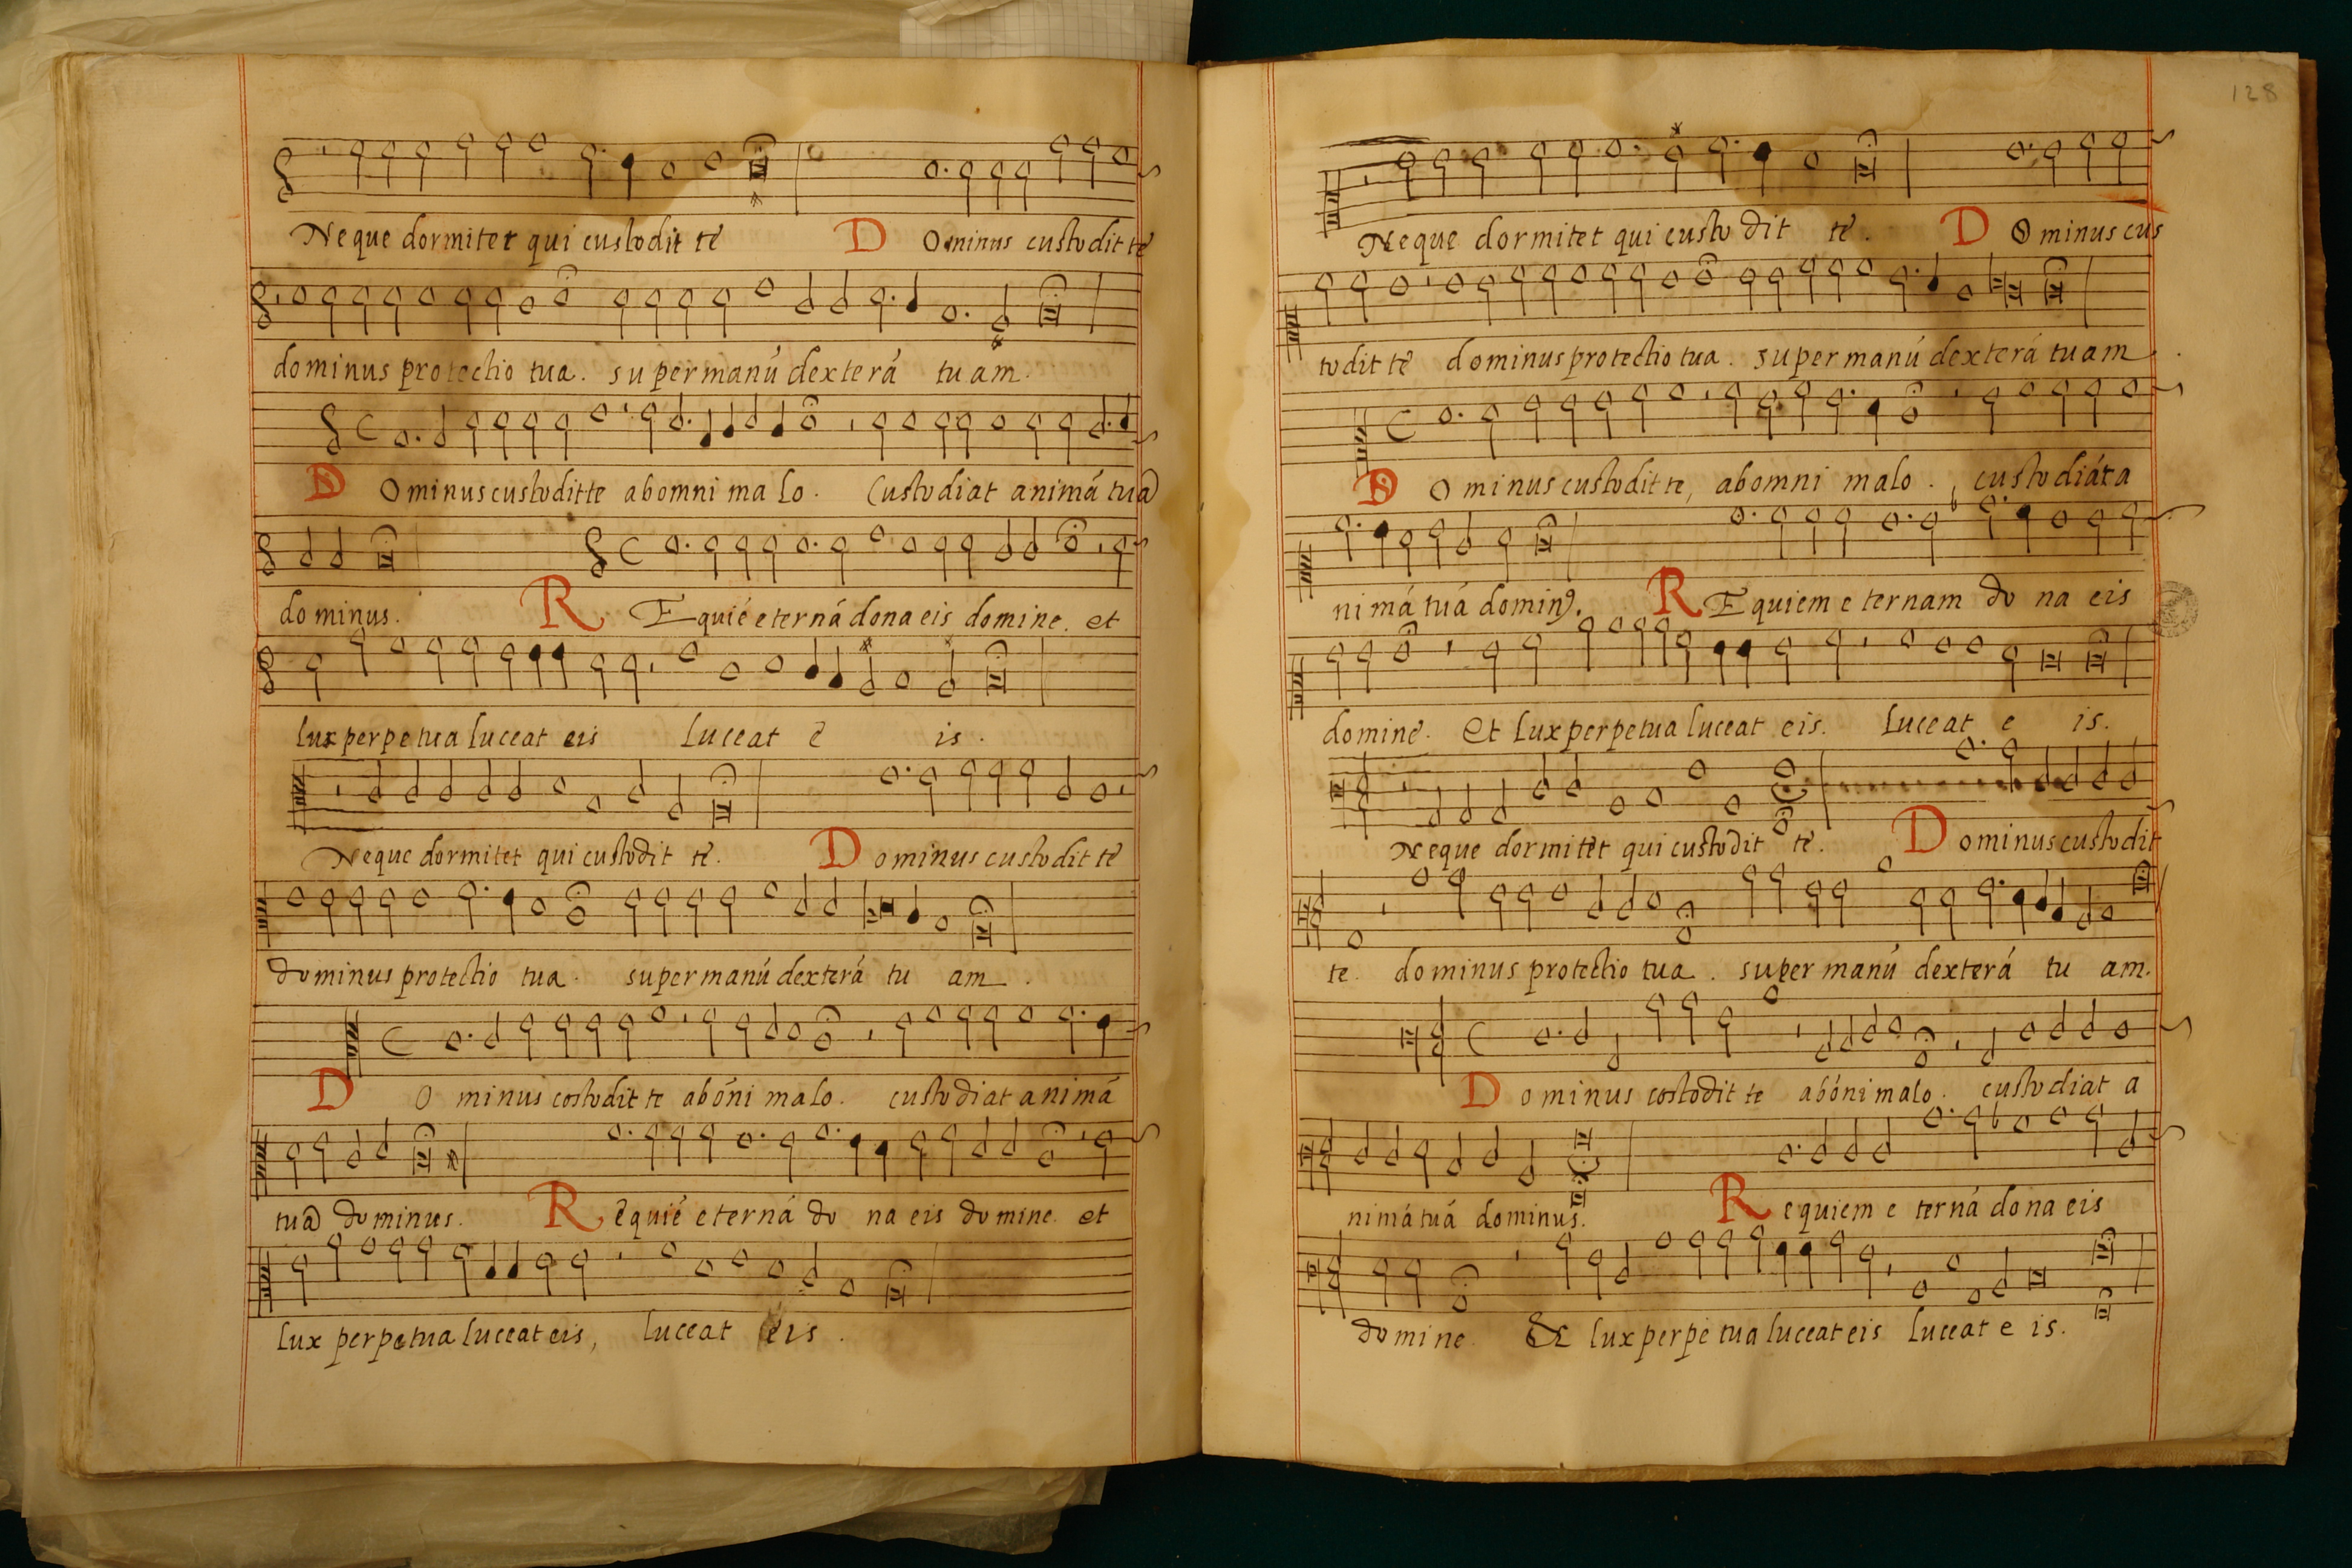 Neque dormitet qui custodit te D Ominus custodit te
dominus protectio tua. super manú dexterá tuam.
D Ominus custodit te ab omni malo. Custodiat animá tuã
dominus. R Equié eterná dona eis domine. et
lux perpetua luceat eis luceat e is.
Neque dormitet qui custodit te. D ominus custodit te
dominus protectio tua. super manú dexterá tu am.
D O minus costodit te abóni malo. custodiat animá
tuã dominus. R equié eterná do na eis domine. et
lux perpetua luceat eis, luceat eis.
128
Neque dormitet qui custo dit te. D O minus cus
todit te dominus protectio tua. super manú dexterá tuam.
D O minus custodit te, ab omni malo. custodiát a
nimá tuá dominꝰ. R E quiem e ternam do na eis
domine. et lux perpetua luceat eis. luceat e is.
Neque dormitet qui custodit te. D ominus custodit
te. dominus protectio tua. super manú dexterá tu am.
D o minus costodit te abóni malo. custodiat a
nimá tuá dominus. R equiem e terná dona eis
domine. & lux perpe tua luceat eis luceat e is.